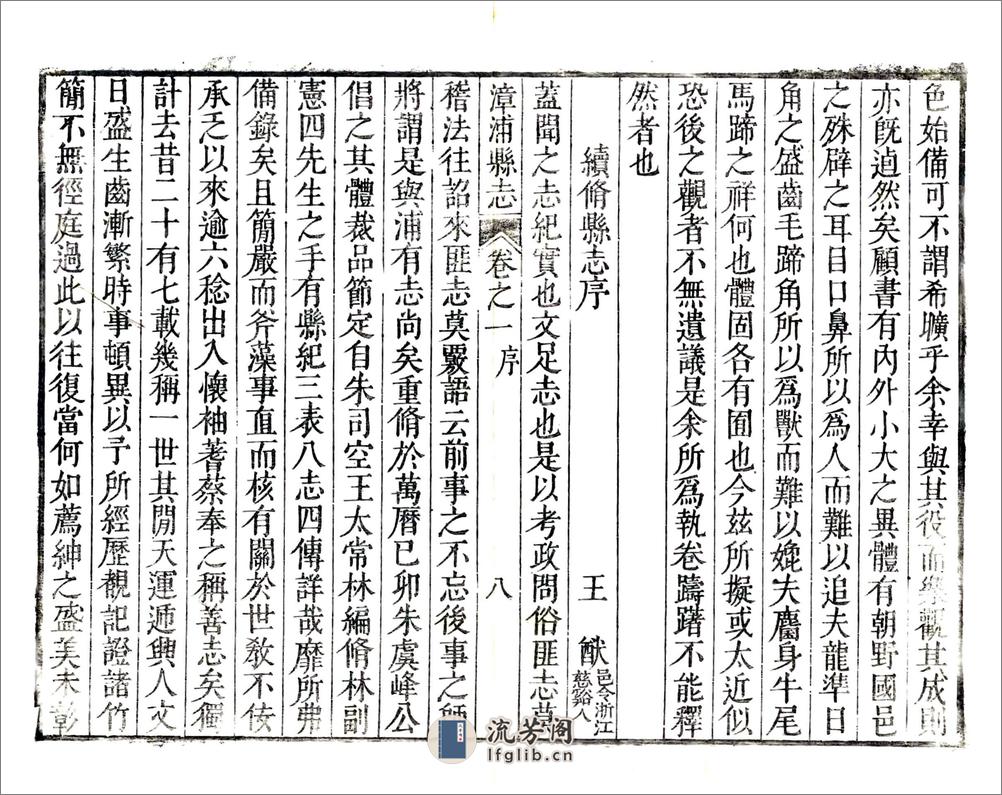 色始備可不謂希曠乎余幸與其役而樂觀其成則
亦旣逌然矣顧書有內外小大之異體有朝野國邑
之殊辟之耳目口鼻所以爲人而難以追夫龍準日
角之盛齒毛蹄角所以爲獸而難以媲夫麕身牛尾
馬蹄之祥何也體固各有囿也今茲所擬或太近似
恐後之觀者不無遺議是余所爲執卷躊躇不能釋
然者也
續脩縣志序
王 猷 邑令浙江慈谿人
蓋聞之志紀實也文足志也是以考政問俗匪志莫
漳浦縣志 卷之一 序 八
稽法往詔來匪志莫覈語云前事之不忘後事之師
將謂是與浦有志尚矣重脩於萬曆己卯朱虞峰公
倡之其體裁品節定自朱司空王太常林編脩林副
憲四先生之手有縣紀三表八志四傳詳哉靡所弗
備錄矣且簡嚴而斧藻事直而核有關於世敎不佞
承乏以來逾六稔出入懷袖蓍蔡奉之稱善志矣獨
計去昔二十有七載幾稱一世其閒天運遞興人文
日盛生齒漸繁時事頓異以予所經歷覩記證諸竹
簡不無徑庭過此以往復當何如薦紳之盛美未彰
流芳阁
lfglib.cn